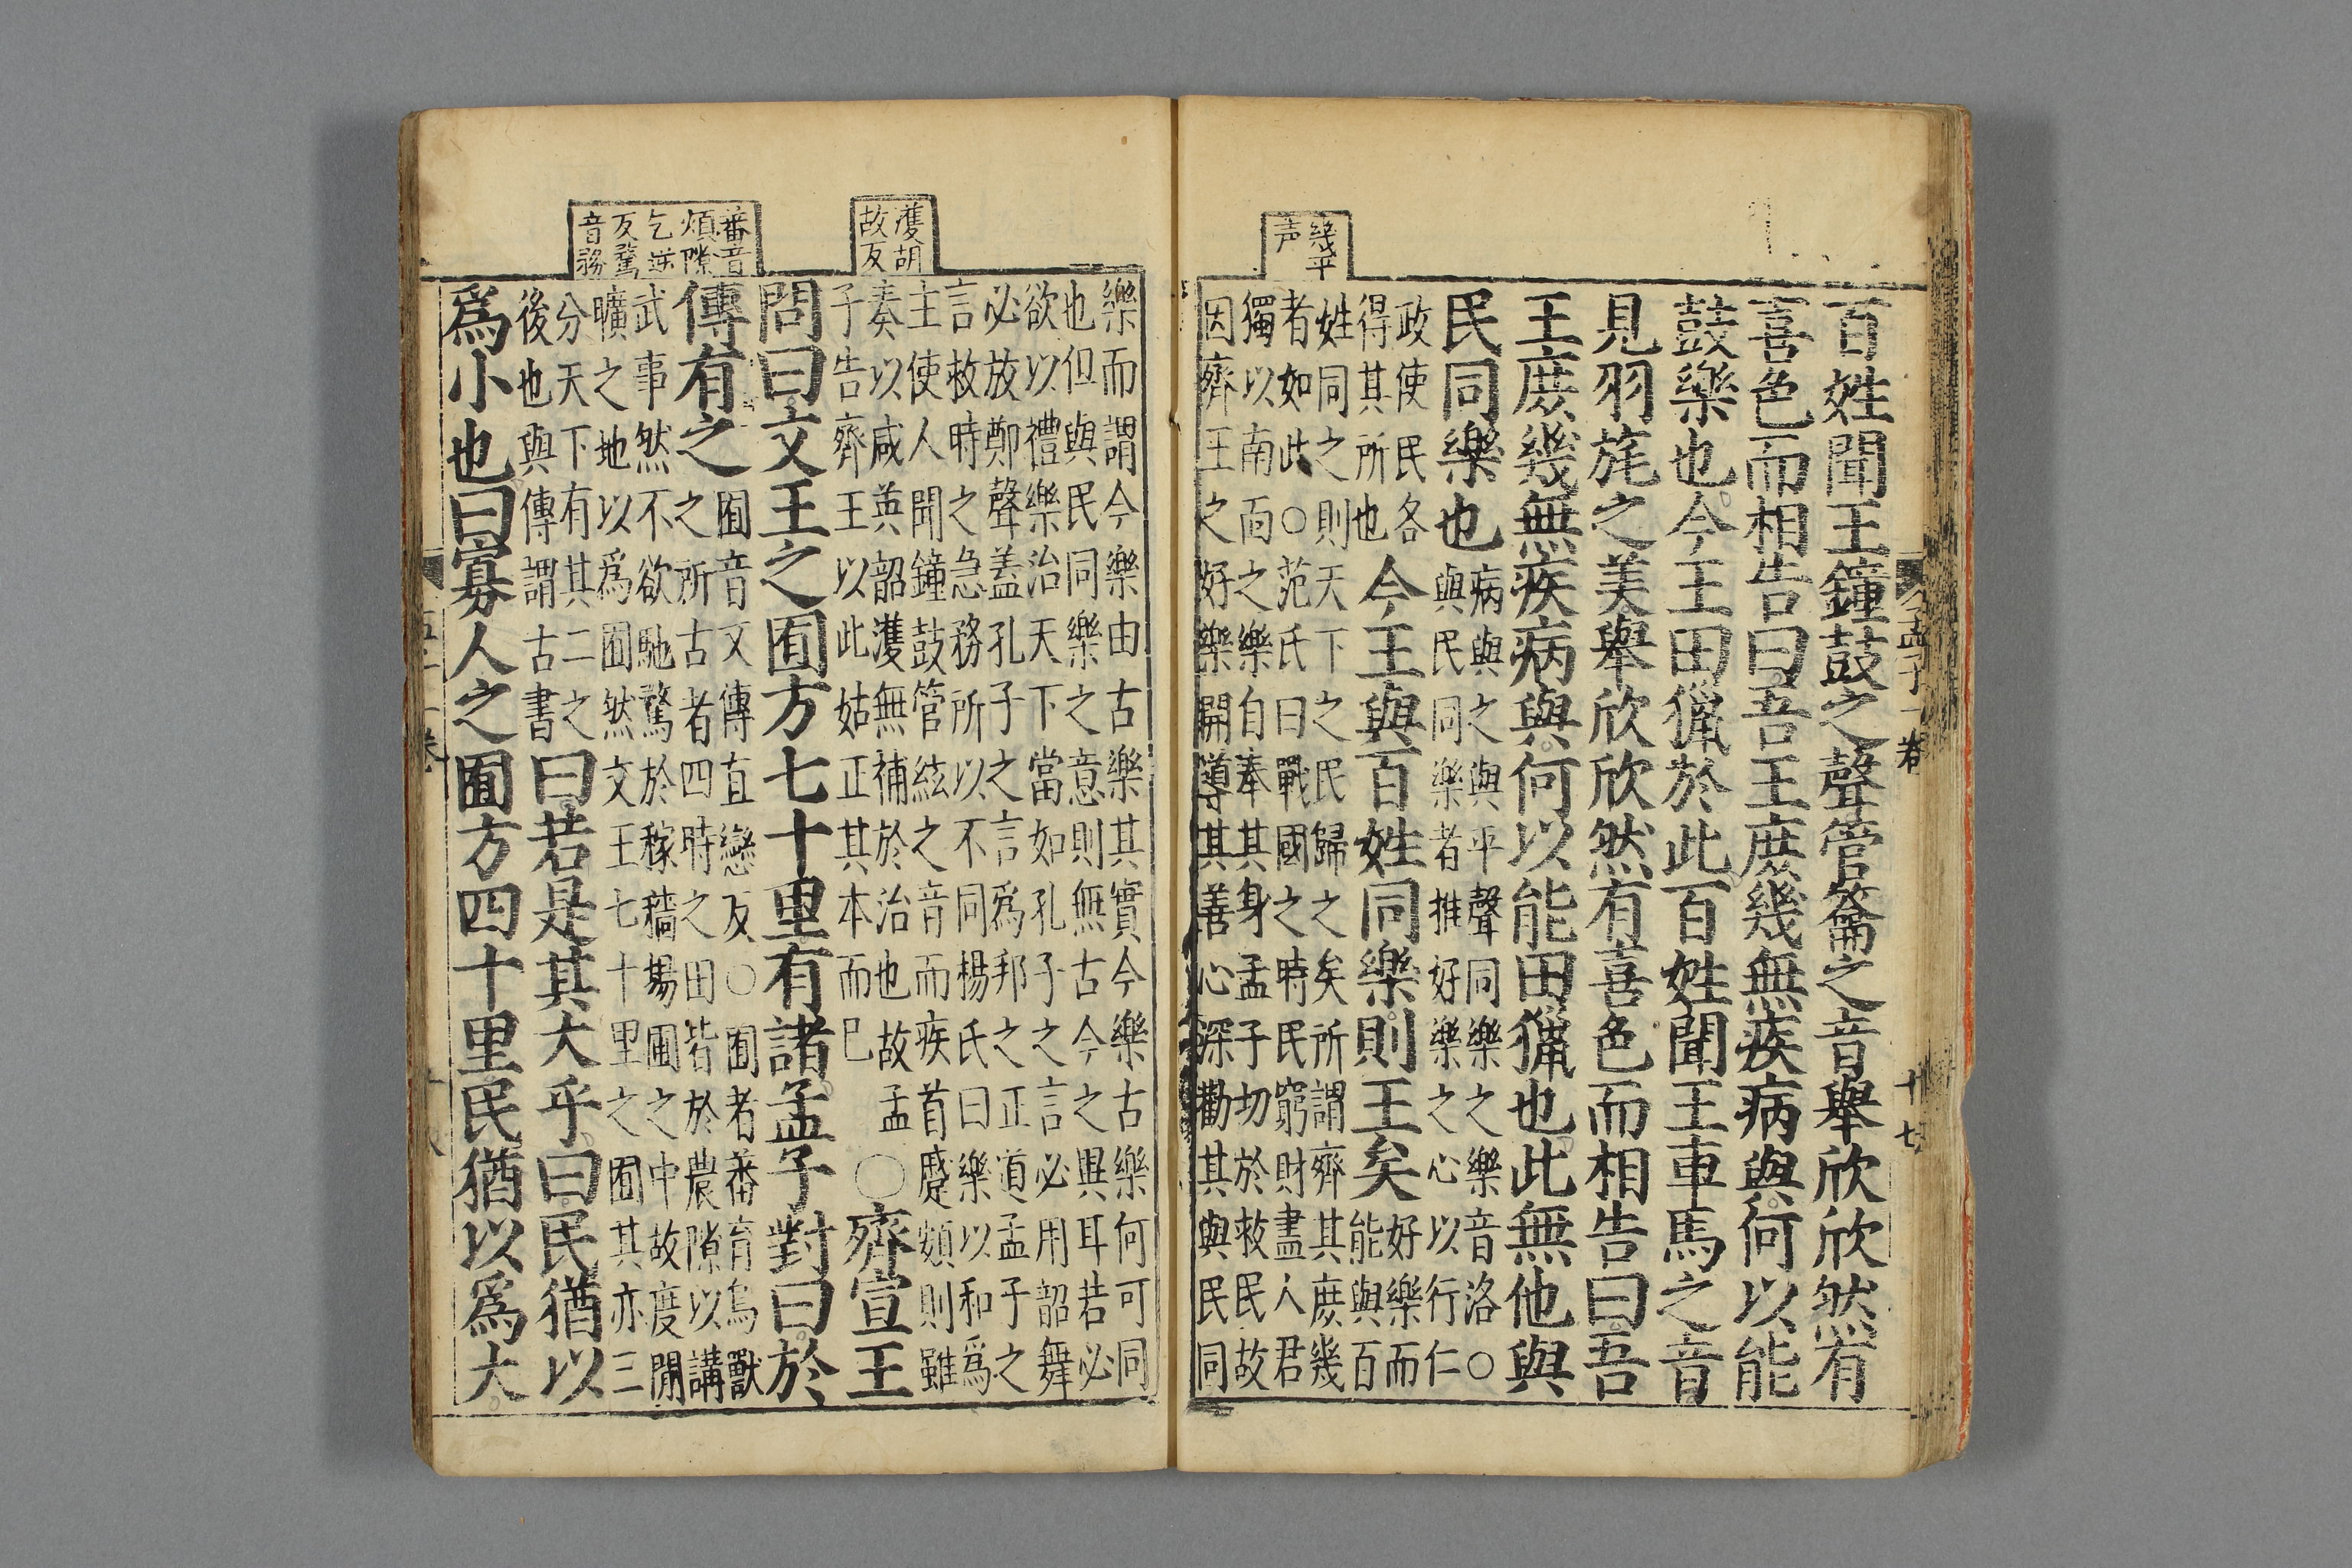 孟子一卷
十七
百姓聞王鐘鼓之聲管籥之音舉欣欣然有
喜色而相告曰吾王庶幾無疾病與何以能
鼓樂也今王田獵於此百姓聞王車馬之音
見羽旄之美舉欣欣然有喜色而相告曰吾
王庶幾無疾病與何以能田獵也此無他與
民同樂也
病與之與平聲同樂之樂音洛○
與民同樂者推好樂之心以行仁
政使民各
得其所也
今王與百姓同樂則王矣
好樂而
能與百
幾平
声
姓同之則天下之民歸之矣所謂齊其庶幾
者如此○范氏曰戰國之時民窮財盡人君
獨以南面之樂自奉其身孟子切於救民故
因齊王之好樂開導其善心深勸其與民同
樂而謂今樂由古樂其實今樂古樂何可同
也但與民同樂之意則無古今之異耳若必
欲以禮樂治天下當如孔子之言必用韶舞
必放鄭聲盖孔子之言爲邦之正道孟子之
言救時之急務所以不同楊氏曰樂以和爲
主使人聞鐘鼓管絃之音而疾首蹙頞則雖
濩胡
故反
奏以咸英韶濩無補於治也故孟
子告齊王以此姑正其本而已
○齊宣王
問曰文王之囿方七十里有諸孟子對曰於
蕃音
煩隙
乞逆
反騖
音務
傳有之
囿音又傳直戀反○囿者蕃育鳥獸
之所古者四時之田皆於農隙以講
武事然不欲馳騖於稼穡場圃之中故度閒
曠之地以爲囿然文王七十里之囿其亦三
分天下有其二之
後也與傳謂古書
曰若是其大乎曰民猶以
爲小也曰寡人之囿方四十里民猶以爲大